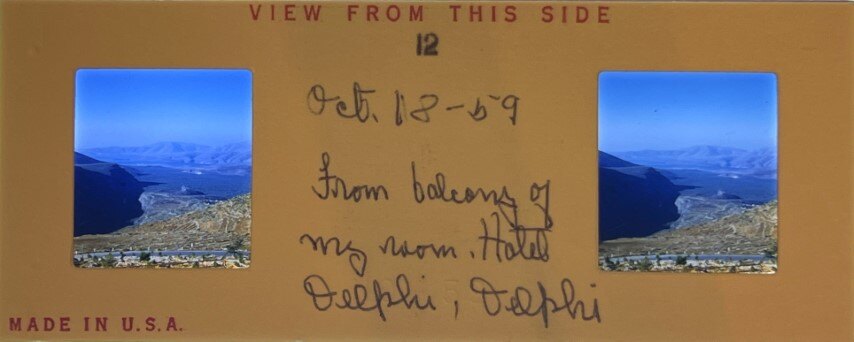 VIEW FROM THIS SIDE
12
Oct. 18-59
From balcony of
my room. Hotel
Delphi, Delphi
MADE IN U.S.A.